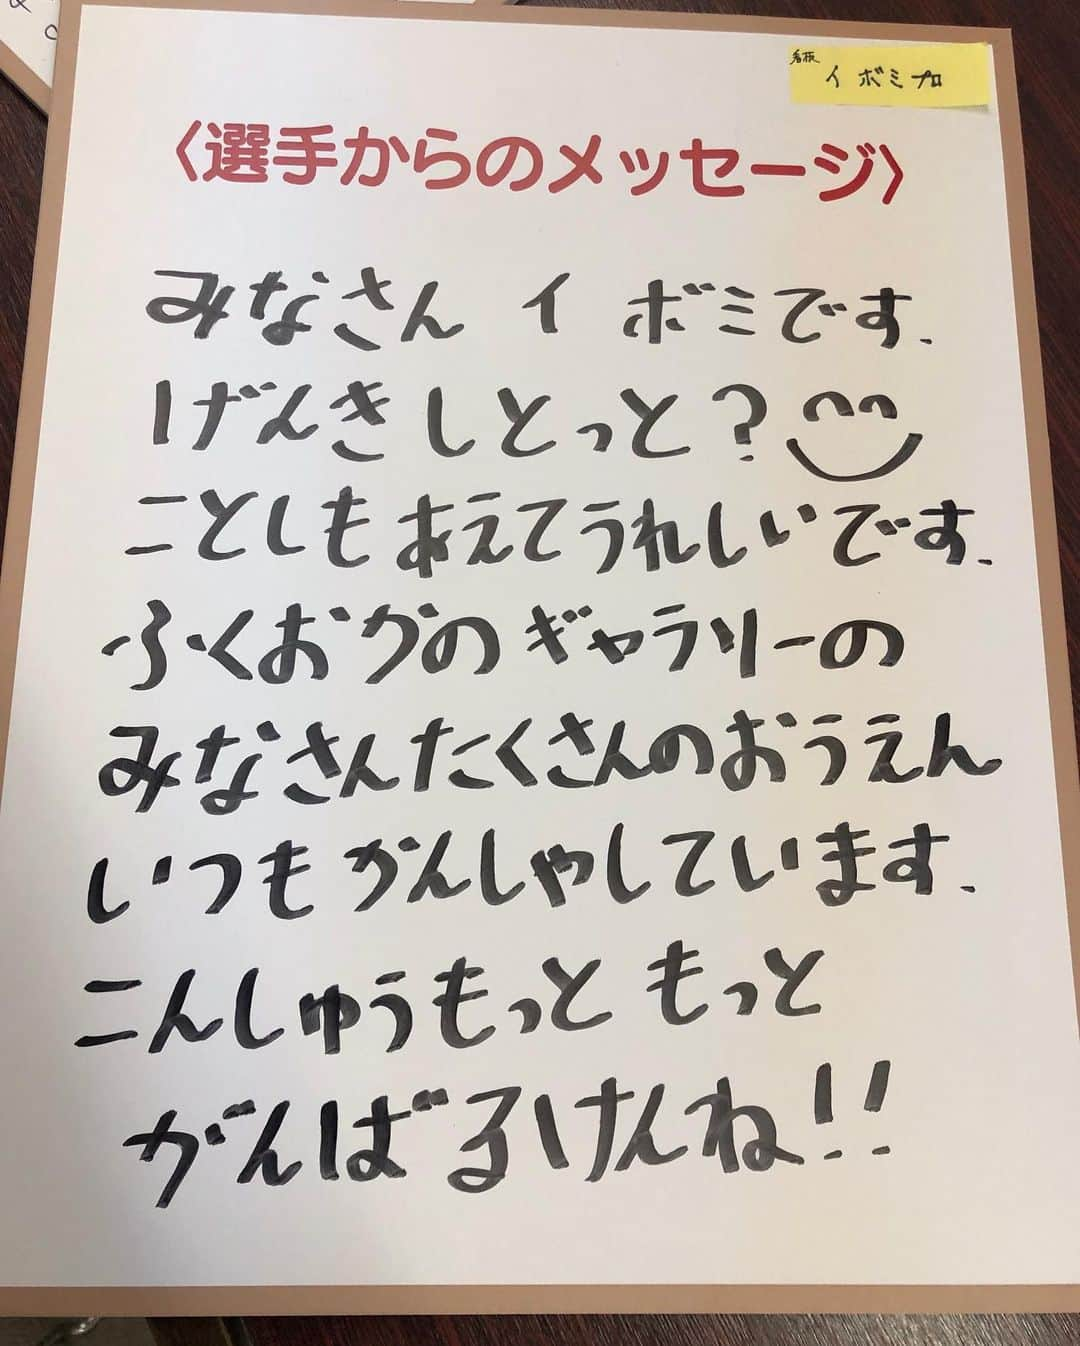 看板
イ ボミプロ
〈選手からのメッセージ〉
みなさん イ ボミです.
げんきしとっと?
ことしもあえてうれしいです.
ふくおかのギャラリーの
みなさんたくさんのおうえん
いつもかんしゃしています.
こんしゅうもっと もっと
がんばるけんね!!